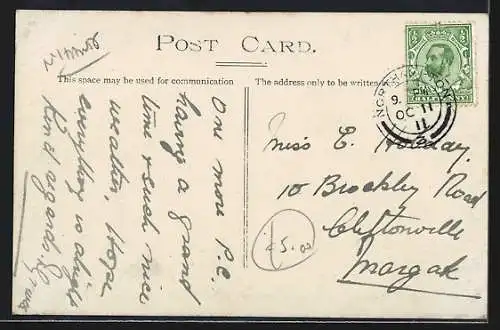 POST CARD.
This space may be used for communication
The address only to be written
One more P.C.
having a grand
time & such nice
weather, Hope
everything is alright
Kind regards
Miss E. Holiday
10 Brockley Road
Cliftonville
Margate
£5.00
NORTHAMPTON
9. PM
OC 11
11